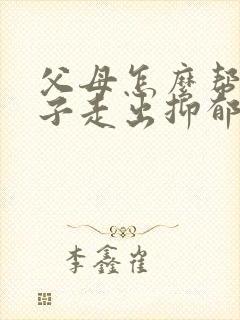 父母怎麽帮
子走出抑郁
李鑫雀